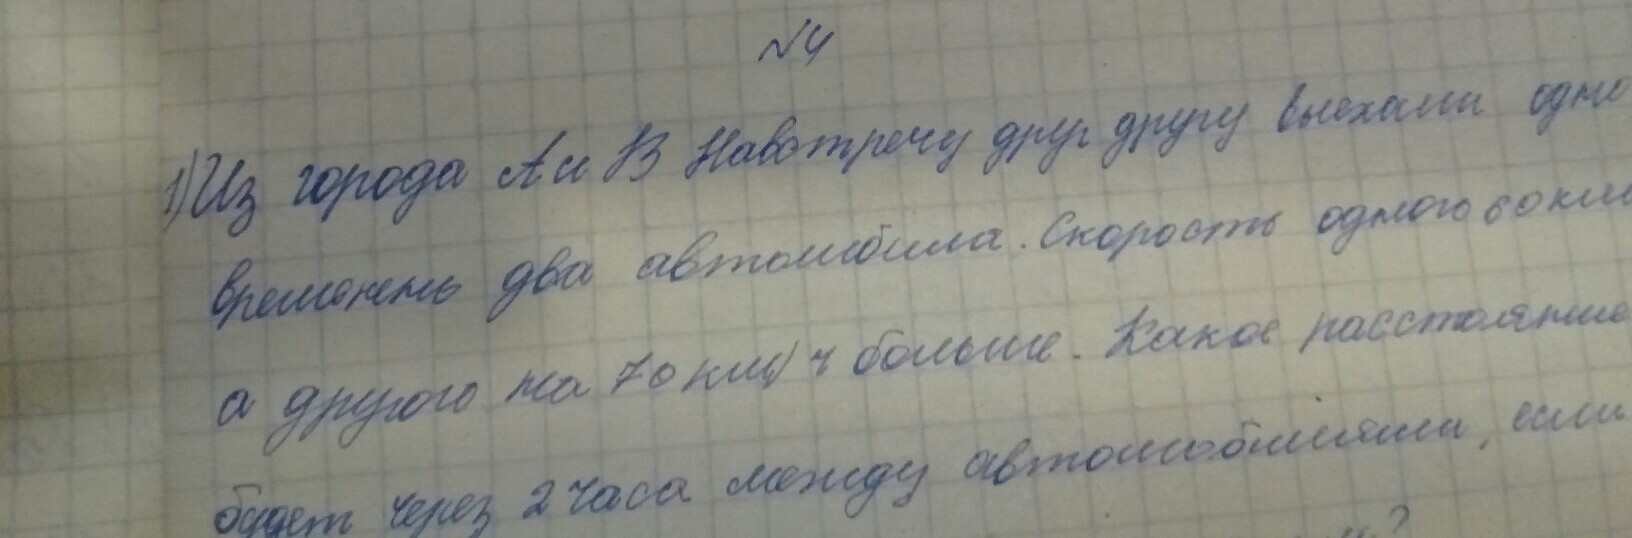 №4
1) Из города А и В Навстречу друг другу выехали одно
временнь два автомбила. Скорость одного 60 км
а другого на 70 км/ч больше. Какое расстояние
будет через 2 часа между автомобилями, если